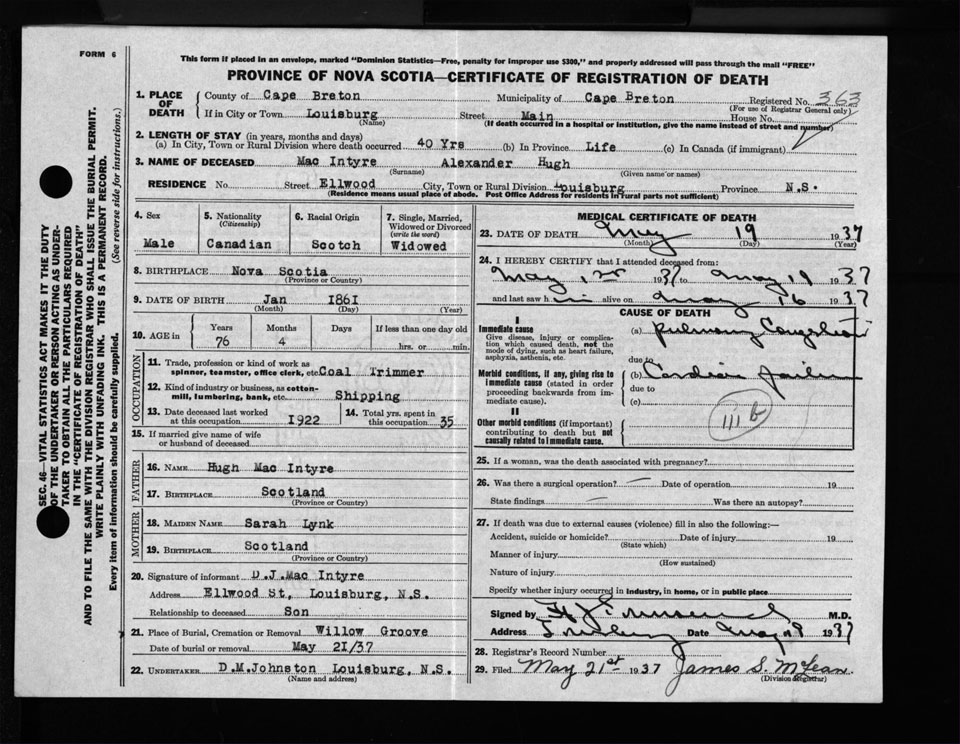 FORM 6
This form if placed in an envelope, marked "Dominion Statistics—Free, penalty for improper use $300," and properly addressed will pass through the mail "FREE"
PROVINCE OF NOVA SCOTIA—CERTIFICATE OF REGISTRATION OF DEATH
SEC. 46—VITAL STATISTICS ACT MAKES IT THE DUTY
OF THE UNDERTAKER OR PERSON ACTING AS UNDER-
TAKER TO OBTAIN ALL THE PARTICULARS REQUIRED
IN THE "CERTIFICATE OF REGISTRATION OF DEATH"
AND TO FILE THE SAME WITH THE DIVISION REGISTRAR WHO SHALL ISSUE THE BURIAL PERMIT.
WRITE PLAINLY WITH UNFADING INK. THIS IS A PERMANENT RECORD.
Every item of information should be carefully supplied. (See reverse side for instructions.)
1. PLACE OF DEATH County of Cape Breton Municipality of Cape Breton Registered No. 363
(For use of Registrar General only)
If in City or Town Louisburg Street Main House No.
(Name) (If death occurred in a hospital or institution, give the name instead of street and number)
2. LENGTH OF STAY (in years, months and days)
(a) In City, Town or Rural Division where death occurred 40 Yrs (b) In Province Life (c) In Canada (if immigrant)
3. NAME OF DECEASED Mac Intyre Alexander Hugh
(Surname) (Given name or names)
RESIDENCE No. Street Ellwood City, Town or Rural Division Louisburg Province N.S.
(Residence means usual place of abode. Post Office Address for residents in rural parts not sufficient)
4. Sex
Male
5. Nationality
(Citizenship)
Canadian
6. Racial Origin
Scotch
7. Single, Married,
Widowed or Divorced
(write the word)
Widowed
8. BIRTHPLACE Nova Scotia
(Province or Country)
9. DATE OF BIRTH Jan 1861
(Month) (Day) (Year)
10. AGE in Years Months Days If less than one day old
76 4 hrs. or min.
OCCUPATION
11. Trade, profession or kind of work as
spinner, teamster, office clerk, etc. Coal Trimmer
12. Kind of industry or business, as cotton-
mill, lumbering, bank, etc. Shipping
13. Date deceased last worked
at this occupation 1922
14. Total yrs. spent in
this occupation 35
15. If married give name of wife
or husband of deceased
FATHER
16. NAME Hugh Mac Intyre
17. BIRTHPLACE Scotland
(Province or Country)
MOTHER
18. MAIDEN NAME Sarah Lynk
19. BIRTHPLACE Scotland
(Province or Country)
20. Signature of informant D.J.Mac Intyre
Address Ellwood St, Louisburg, N.S.
Relationship to deceased Son
21. Place of Burial, Cremation or Removal Willow Groove
Date of burial or removal May 21/37
22. UNDERTAKER D.M.Johnston Louisburg, N.S.
(Name and address)
MEDICAL CERTIFICATE OF DEATH
23. DATE OF DEATH May 19 1937
(Month) (Day) (Year)
24. I HEREBY CERTIFY that I attended deceased from:
May 1st 1937 to May 19 1937
and last saw him alive on May 16 1937
CAUSE OF DEATH
I
Immediate cause
Give disease, injury or complica-
tion which caused death, not the
mode of dying, such as heart failure,
asphyxia, asthenia, etc.
(a) pulmonary Congestion
due to
Morbid conditions, if any, giving rise to
immediate cause (stated in order
proceeding backwards from im-
mediate cause).
(b) Cardiac failure
due to
(c)
II
Other morbid conditions (if important)
contributing to death but not
causally related to immediate cause.
III b
25. If a woman, was the death associated with pregnancy?
26. Was there a surgical operation? — Date of operation 19
State findings — Was there an autopsy?
27. If death was due to external causes (violence) fill in also the following:—
Accident, suicide or homicide? Date of injury 19
(State which)
Manner of injury
(How sustained)
Nature of injury
Specify whether injury occurred in industry, in home, or in public place
Signed by M.D.
Address Date May 1937
28. Registrar's Record Number
29. Filed May 21st 1937 James S. McLean
(Division Registrar)